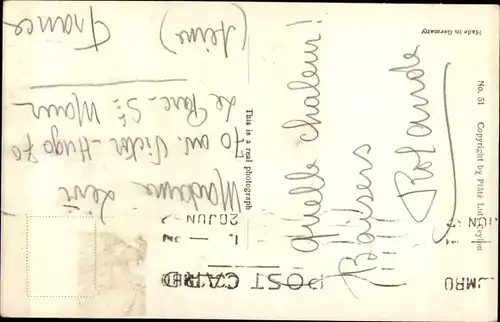 POST CARD
Quelle chaleur!
Baisers
Rolande
Madame
Lévi
70 av. Victor-Hugo 70
Le Parc-St Maur
(Seine)
France
This is a real photograph
No. 51 Copyright by Plâté Ltd., Ceylon
Made in Germany
20JUN